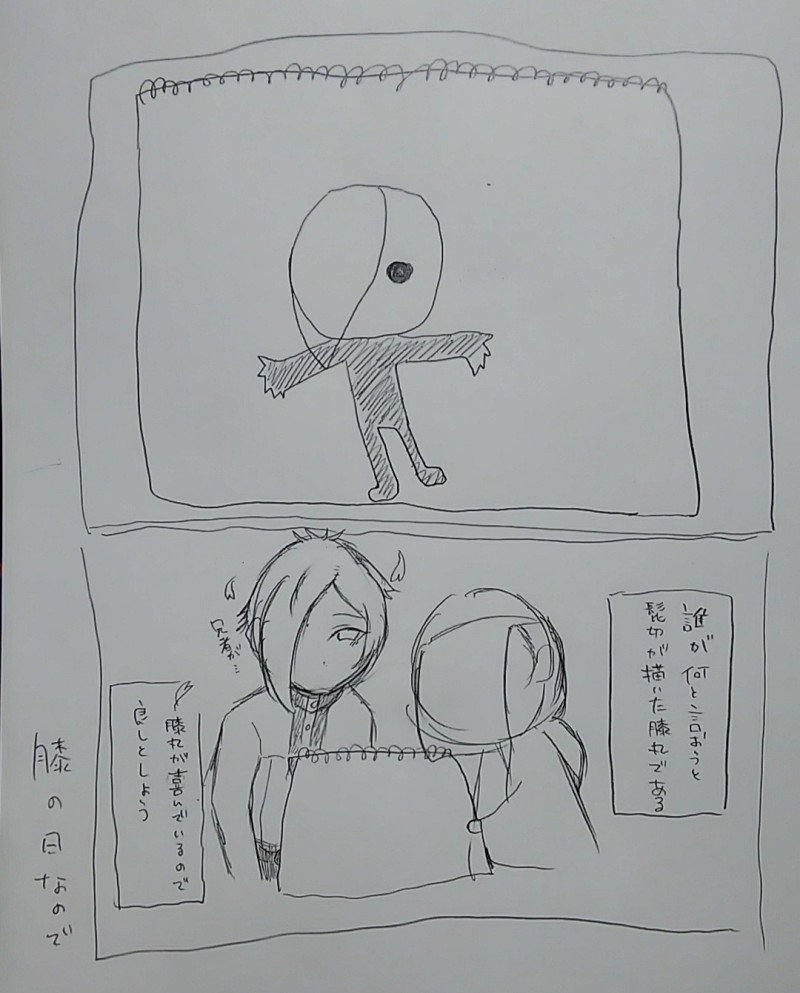 誰が何と言おうと
髭切が描いた膝丸である
兄者が…
膝丸が喜んでいるので
良しとしよう
膝の日なので